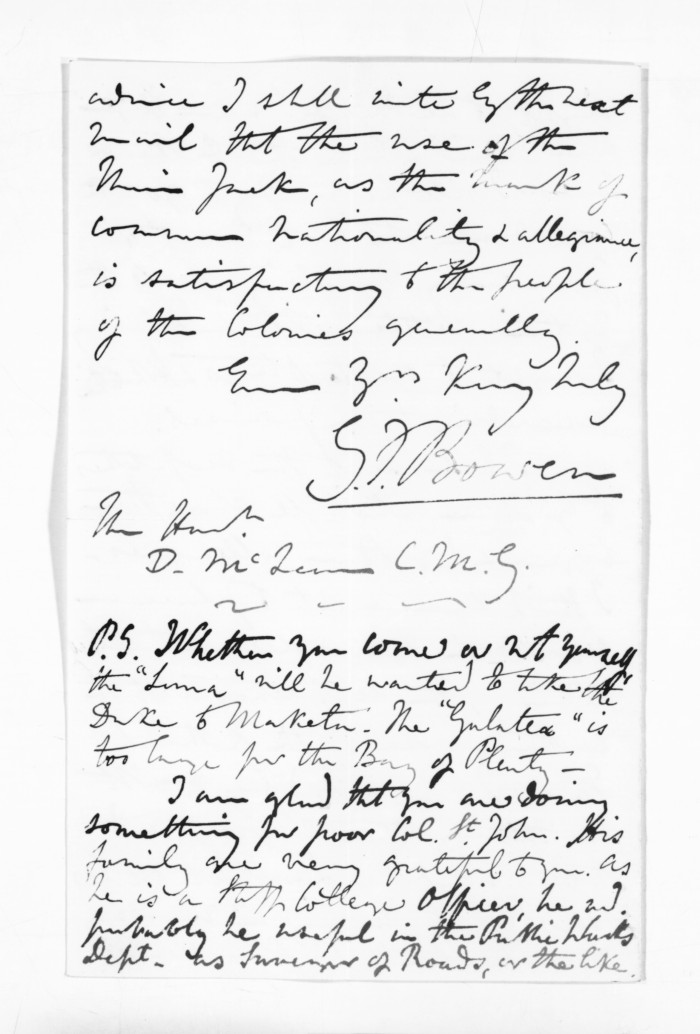 advice I shll write by the next
mail tht the use of the
Union Jack, as the mark of
common nationality & allegiance,
is satisfactory to the people
of the Colonies generally.
Ever Yrs
G.F. Bowen
The Honl.
D. McLean C.M.G.
P.S. Whether you come or not yourself
the "Luna" will be wanted to take the
Duke to Maketu. The "Galatea" is
too large for the Bay of Plenty -
I am glad tht you are doing
something for poor Col. St. John. His
family are very grateful to you. As
he is a Staff College Officer, he wd.
probably be useful in the Public Works
Dept. - as Surveyor of Roads, or the like.